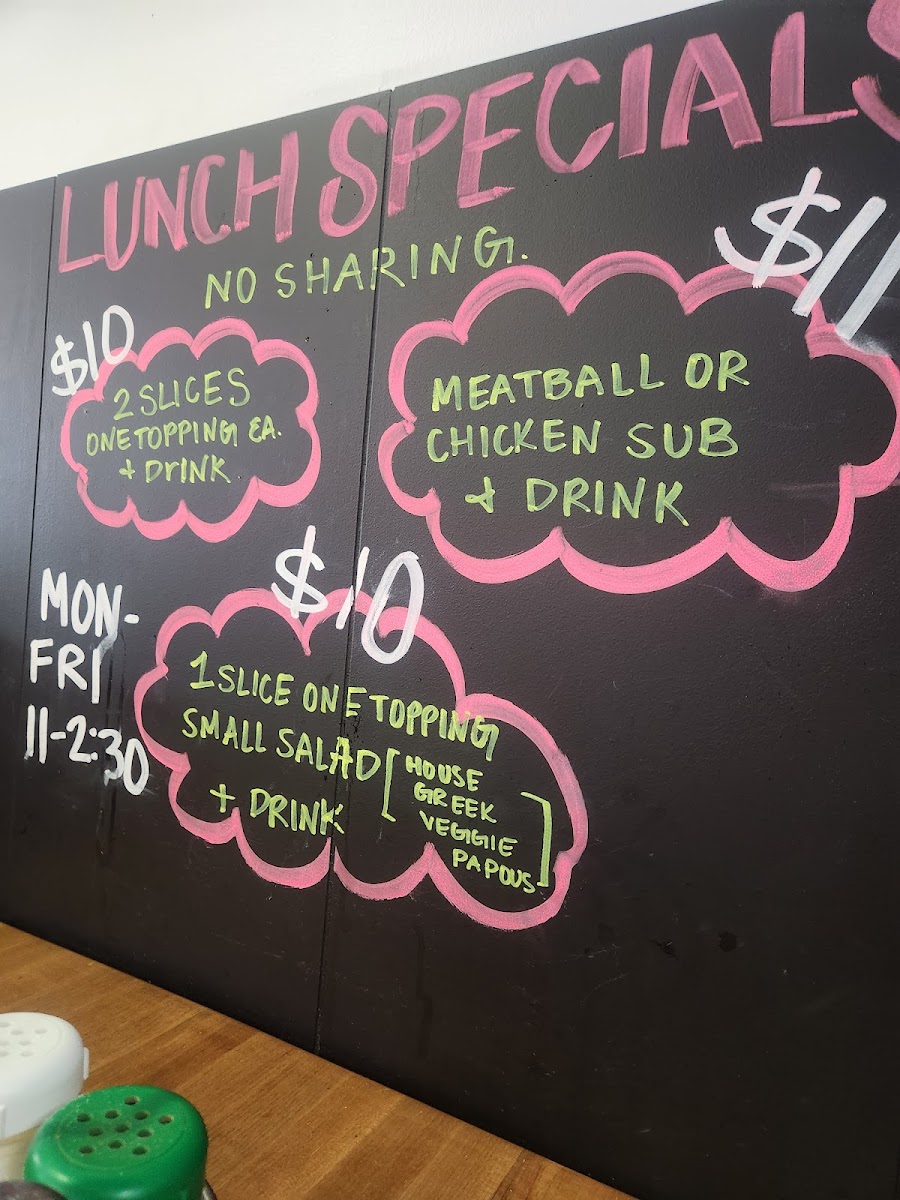 LUNCH SPECIALS
NO SHARING.
$10
2 SLICES
ONE TOPPING EA.
+ DrINK
$11
MEATBALL OR
CHICKEN SUB
& DRINK
MON-
FRI
11-2:30
$10
1 SLICE ONE TOPPING
SMALL SALAD [HOUSE
GREEK
VEGGIE
PAPOUS]
+ DRINK